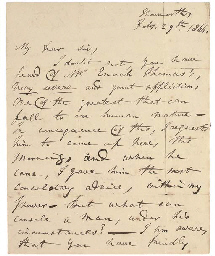 Feby. 29th 1864.
My dear Sir,
I doubt not you have
heard of Mr Enoch Thomas's,
very severe and great affliction,
one of the greatest that can
fall to our human nature —
In consequence of this, I requested
him to come up here, this
morning, and when he
came, I gave him the most
consoling advice, within my
power — that what can
console a man, under his
circumstances? — I am aware,
that you have kindly